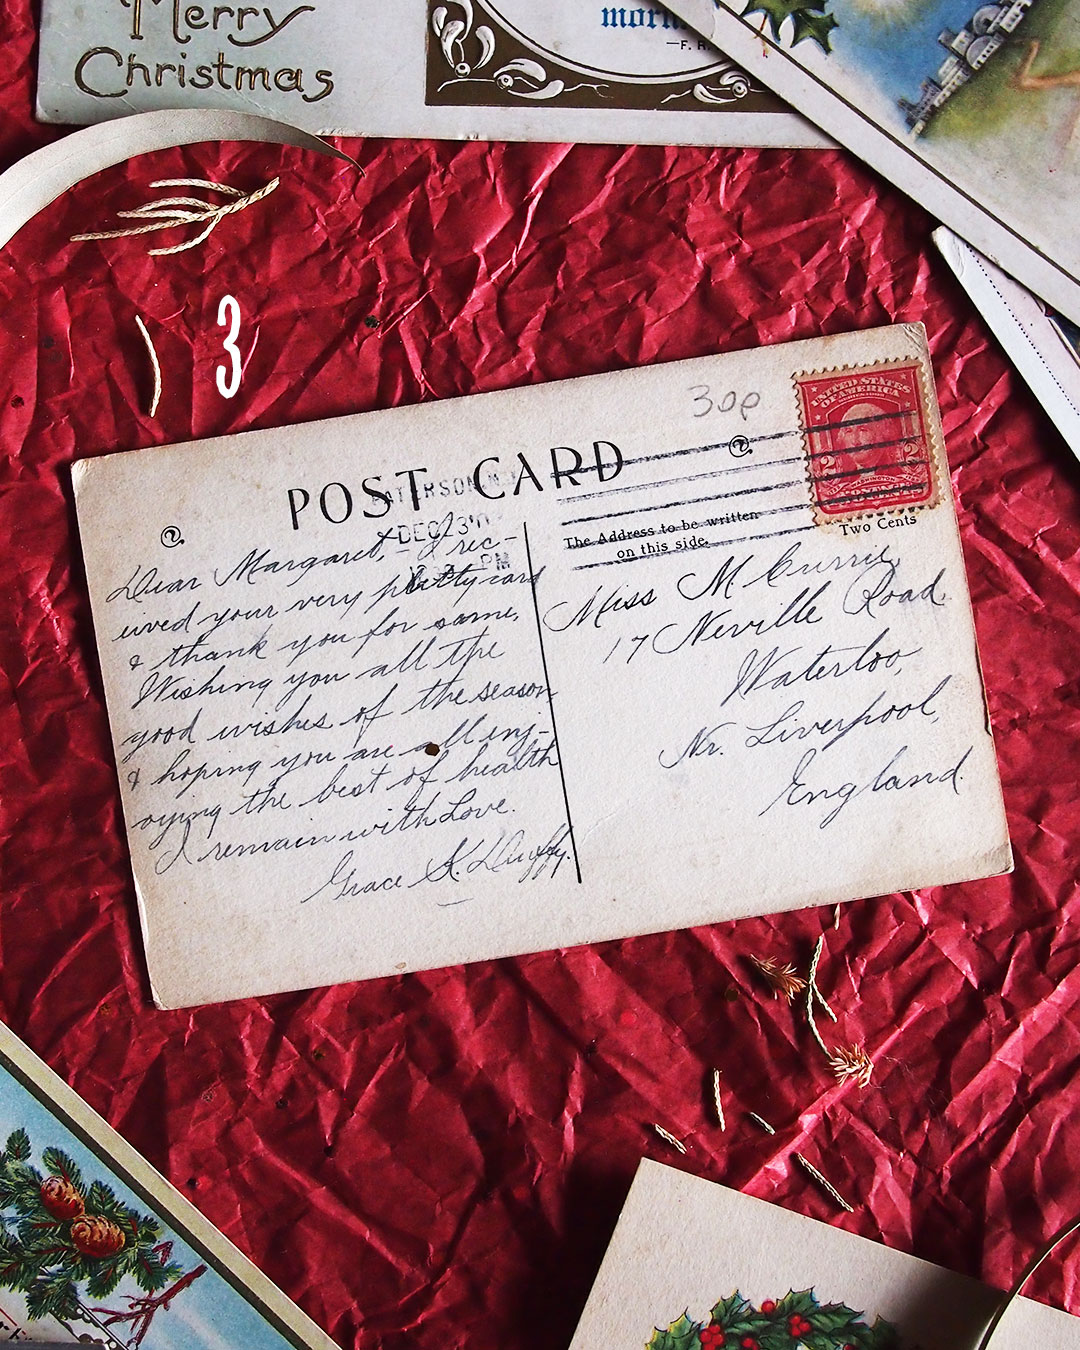 Merry
Christmas
morn
—F. R.
3
30p
UNITED STATES
OF AMERICA
2 2
Two Cents
POST CARD
PATERSON, N.J.
DEC 31
PM
The Address to be written
on this side.
Dear Margaret, – I rec–
ieved your very pretty card
& thank you for same.
Wishing you all the
good wishes of the season,
& hoping you are all enj–
oying the best of health
I remain with Love.
Grace K. Duffy.
Miss M Currie,
17 Neville Road.
Waterloo,
Nr. Liverpool,
England.